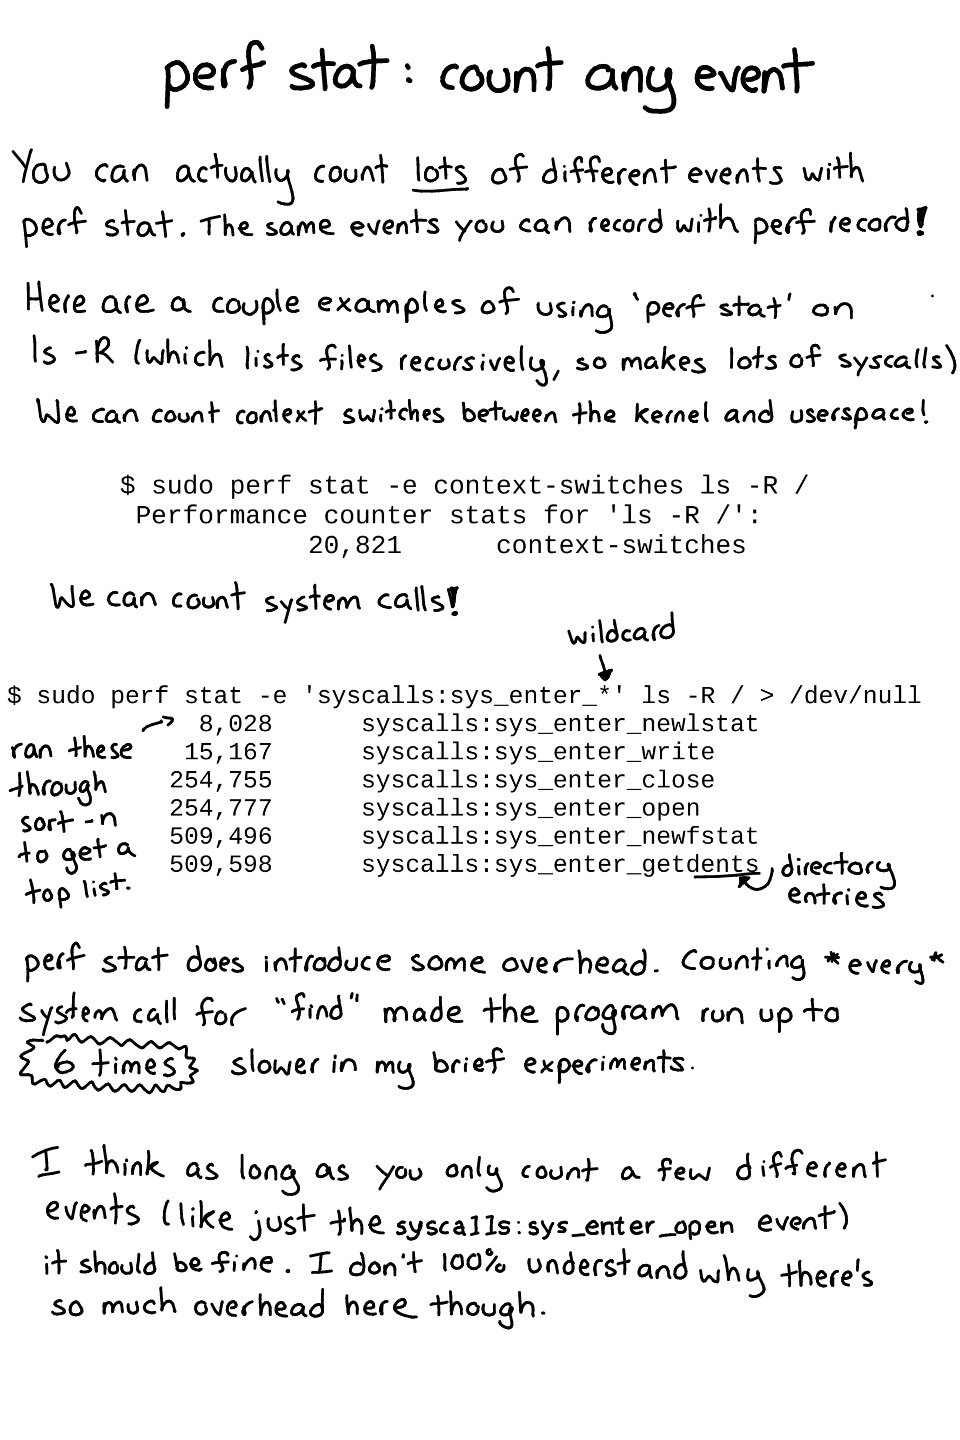 perf stat: count any event
You can actually count lots of different events with
perf stat. The same events you can record with perf record!
Here are a couple examples of using 'perf stat' on
ls -R (which lists files recursively, so makes lots of syscalls)
We can count context switches between the kernel and userspace!
$ sudo perf stat -e context-switches ls -R /
Performance counter stats for 'ls -R /':
20,821 context-switches
We can count system calls!
wildcard
$ sudo perf stat -e 'syscalls:sys_enter_*' ls -R / > /dev/null
8,028 syscalls:sys_enter_newlstat
15,167 syscalls:sys_enter_write
254,755 syscalls:sys_enter_close
254,777 syscalls:sys_enter_open
509,496 syscalls:sys_enter_newfstat
509,598 syscalls:sys_enter_getdents
ran these
through
sort -n
to get a
top list.
directory
entries
perf stat does introduce some overhead. Counting *every*
system call for "find" made the program run up to
6 times slower in my brief experiments.
I think as long as you only count a few different
events (like just the syscalls:sys_enter_open event)
it should be fine. I don't 100% understand why there's
so much overhead here though.